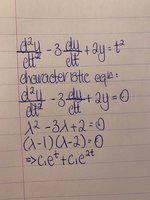 d²y/dt² - 3 dy/dt + 2y = t²
characteristic eqn:
d²y/dt² - 3 dy/dt + 2y = 0
λ² - 3λ + 2 = 0
(λ-1)(λ-2) = 0
⇒ c₁e^t + c₁e^2t